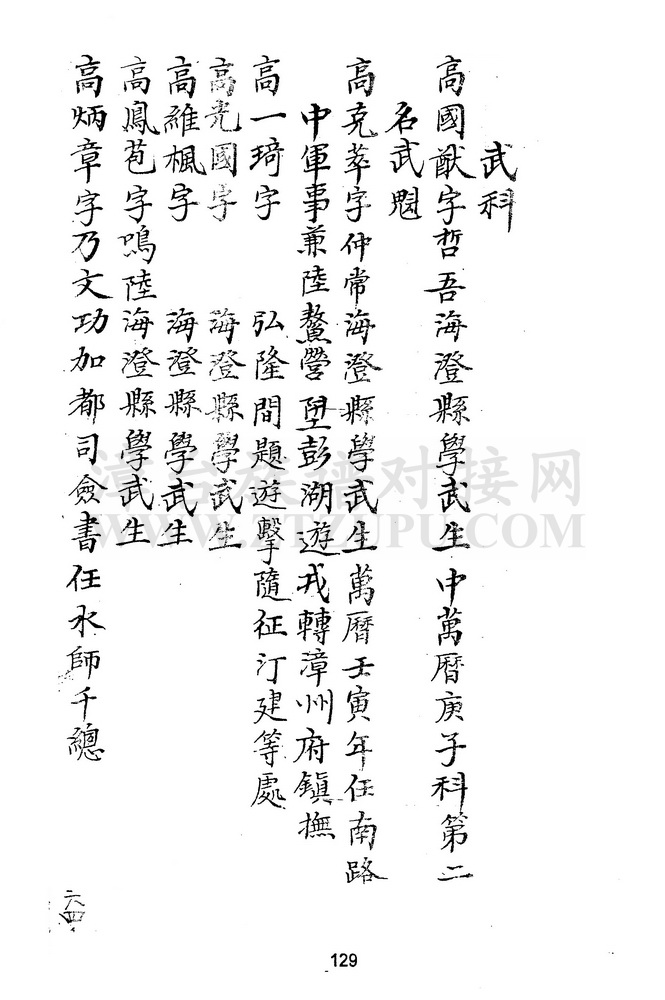 武科
高國猷字哲吾海澄縣學武生中萬曆庚子科第二
名武魁
高克萃字仲常海澄縣學武生萬曆壬寅年任南路
中軍事兼陸鰲營陞彭湖遊戎轉漳州府鎮撫
高一琦字 弘隆間題遊擊隨征汀建等處
高光國字 海澄縣學武生
高維楓字 海澄縣學武生
高鳳苞字鳴陸海澄縣學武生
高炳章字乃文功加都司僉書任水師千總
六四
129
漳台族譜对接网
WWW.ZTZUPU.COM